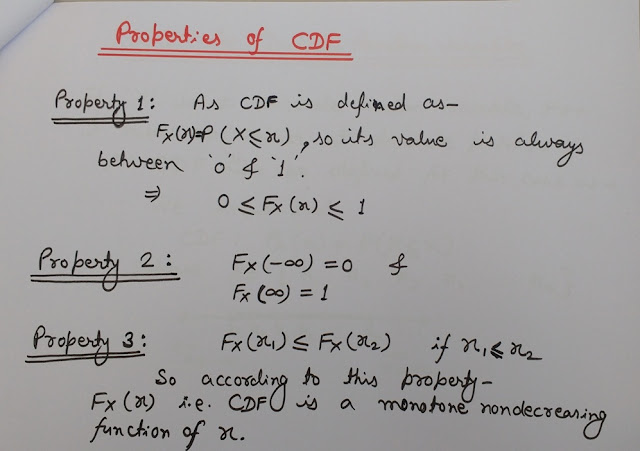 Properties of CDF
Property 1: As CDF is defined as-
Fx(x)=P(X≤x), so its value is always
between '0' & '1'.
⇒ 0 ≤ Fx(x) ≤ 1
Property 2: Fx(-∞) = 0 &
Fx(∞) = 1
Property 3: Fx(x₁) ≤ Fx(x₂) if x₁ ≤ x₂
So according to this property-
Fx(x) i.e. CDF is a monotone nondecreasing
function of x.